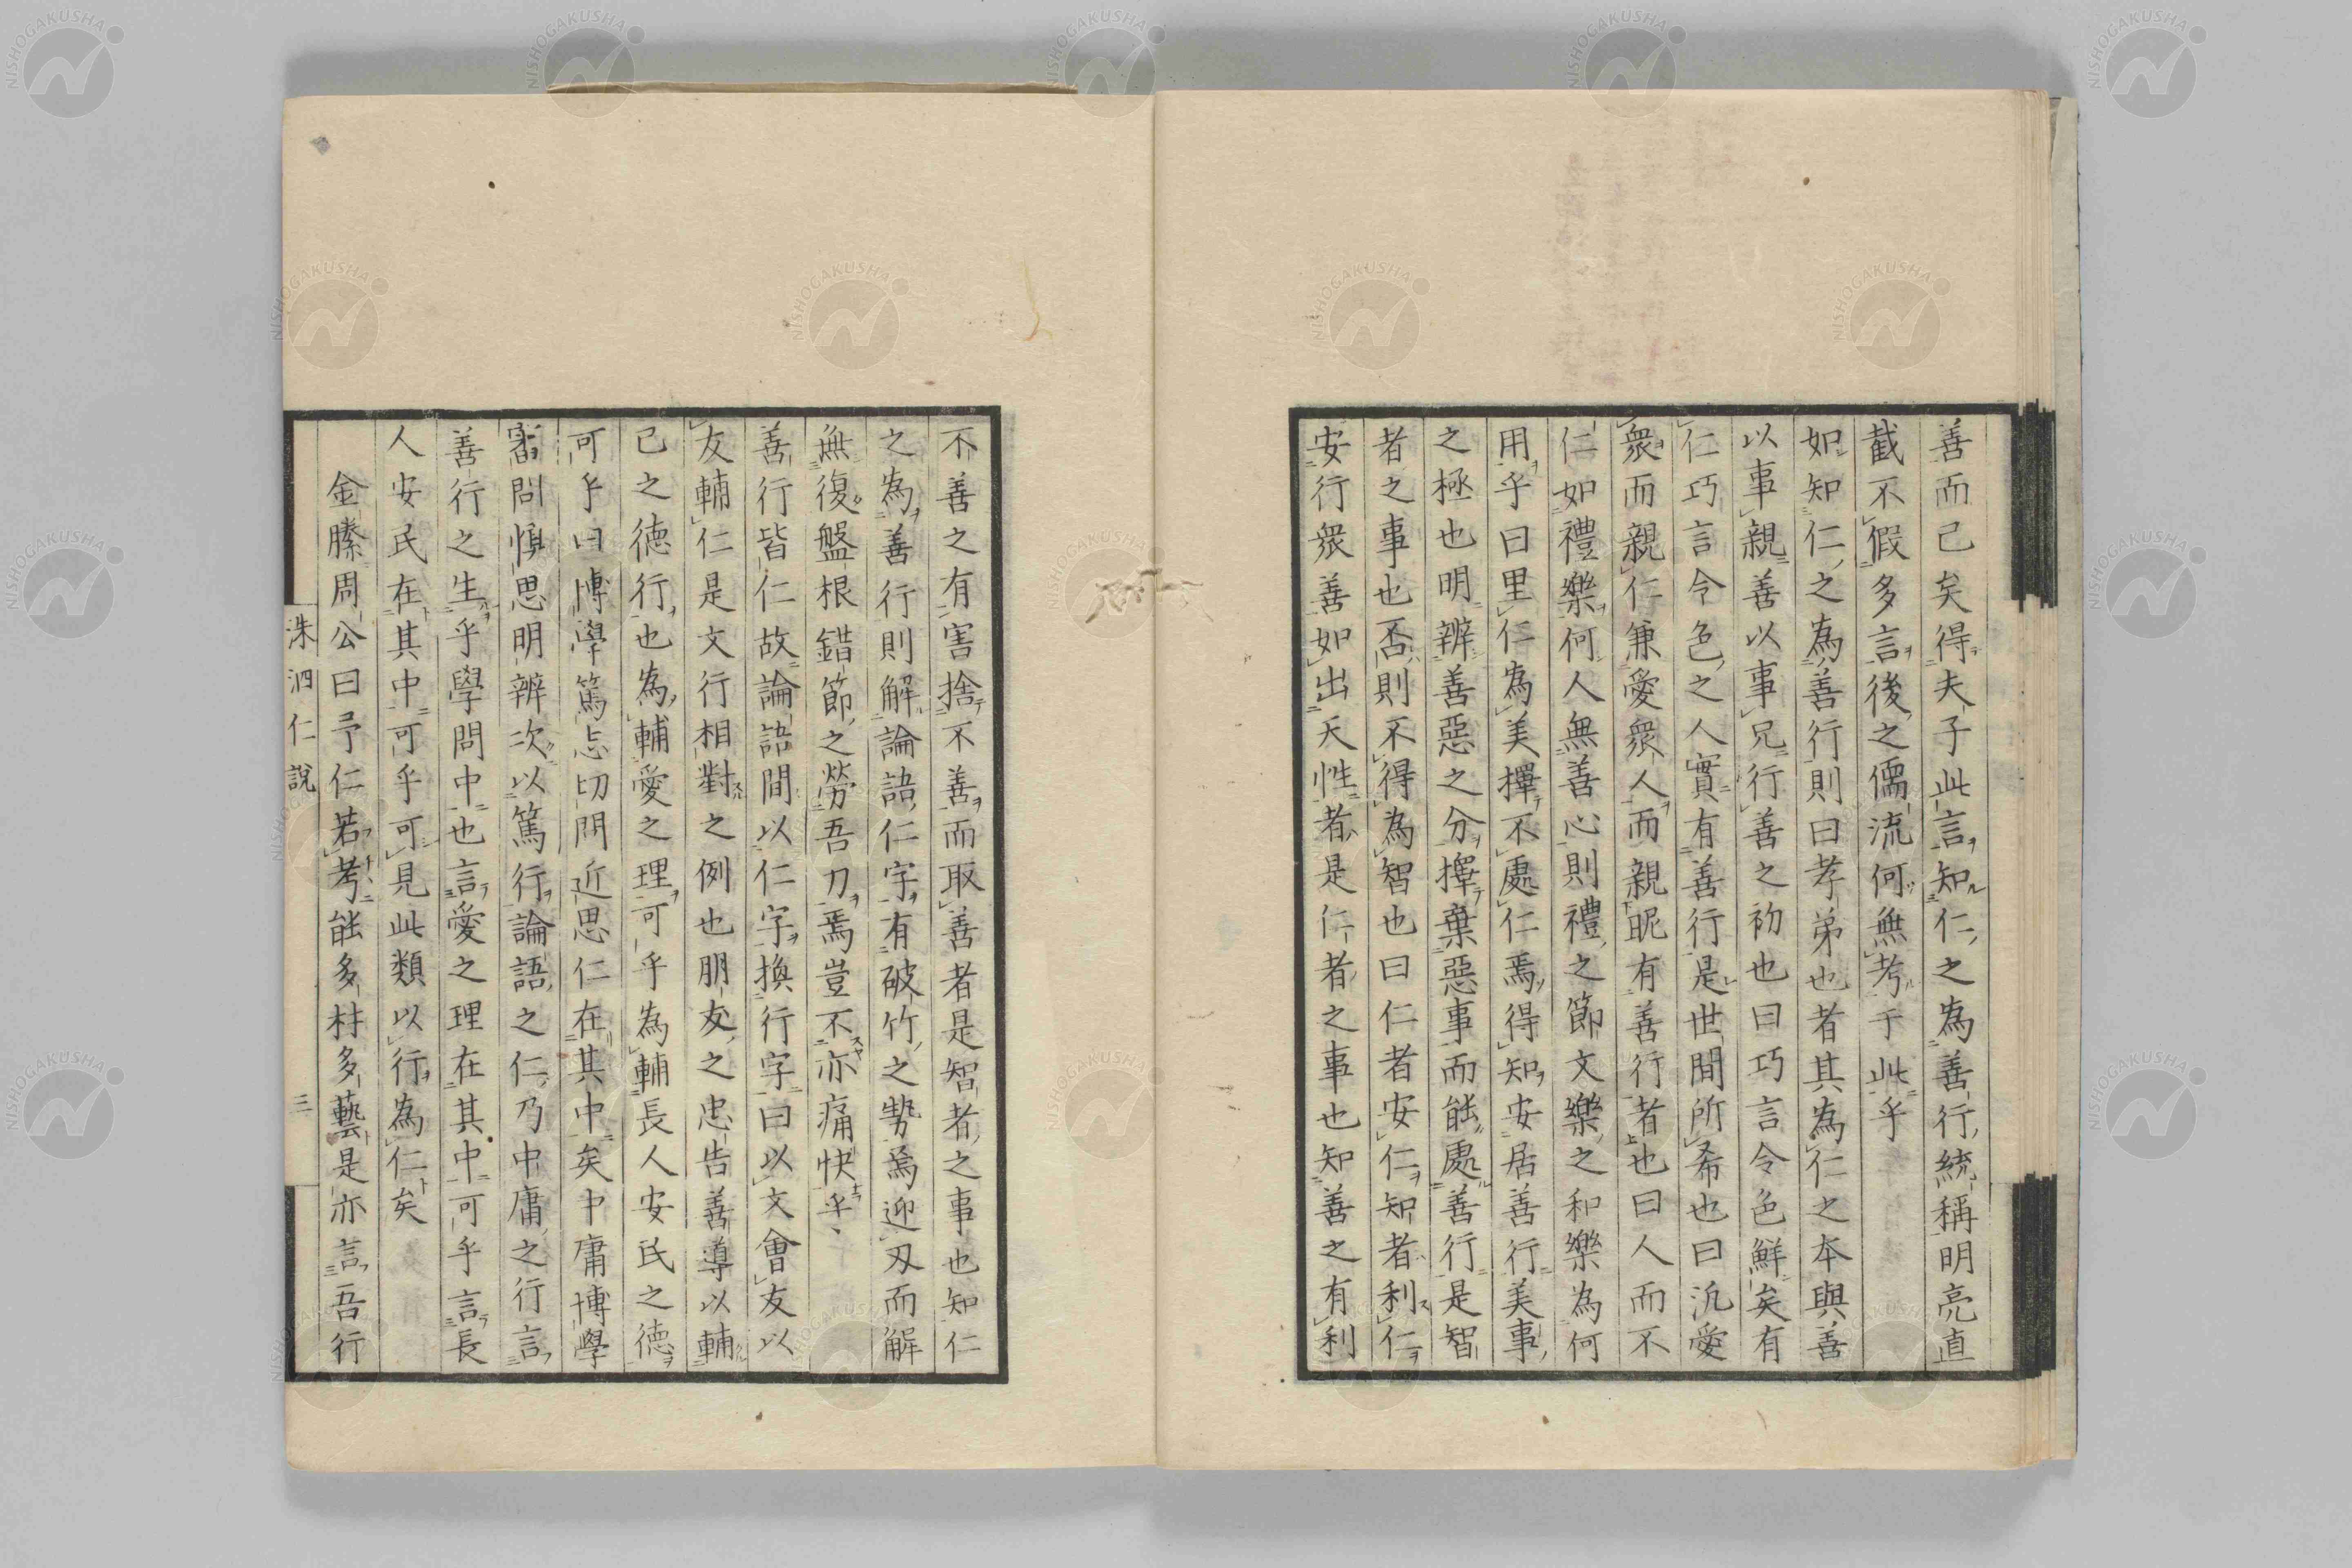 善而已矣得夫子此言知仁之為善行統稱明亮直
截不假多言後之儒流何無考于此乎
如知仁之為善行則曰孝弟也者其為仁之本與善
以事親善以事兄行善之初也曰巧言令色鮮矣有
仁巧言令色之人實有善行是世間所希也曰汎愛
衆而親仁兼愛衆人而親昵有善行者也曰人而不
仁如禮樂何人無善心則禮之節文樂之和樂為何
用乎曰里仁為美擇不處仁焉得知安居善行美事
之極也明辨善惡之分擇棄惡事而能處善行是智
者之事也否則不得為智也曰仁者安仁知者利仁
安行衆善如出天性者是仁者之事也知善之有利
不善之有害捨不善而取善者是智者之事也知仁
之為善行則解論語仁字有破竹之勢焉迎刃而解
無復盤根錯節之勞吾刀焉豈不亦痛快乎
善行皆仁故論語間以仁字換行字曰以文會友以
友輔仁是文行相對之例也朋友之忠告善導以輔
己之德行也為輔愛之理可乎為輔長人安民之德
可乎曰博學篤志切問近思仁在其中矣中庸博學
審問慎思明辨次以篤行論語之仁乃中庸之行言
善行之生乎學問中也言愛之理在其中可乎言長
人安民在其中可乎可見此類以行為仁矣
金縢周公曰予仁若考能多材多藝是亦言吾行
洙泗仁說
三
NISHOGAKUSHA